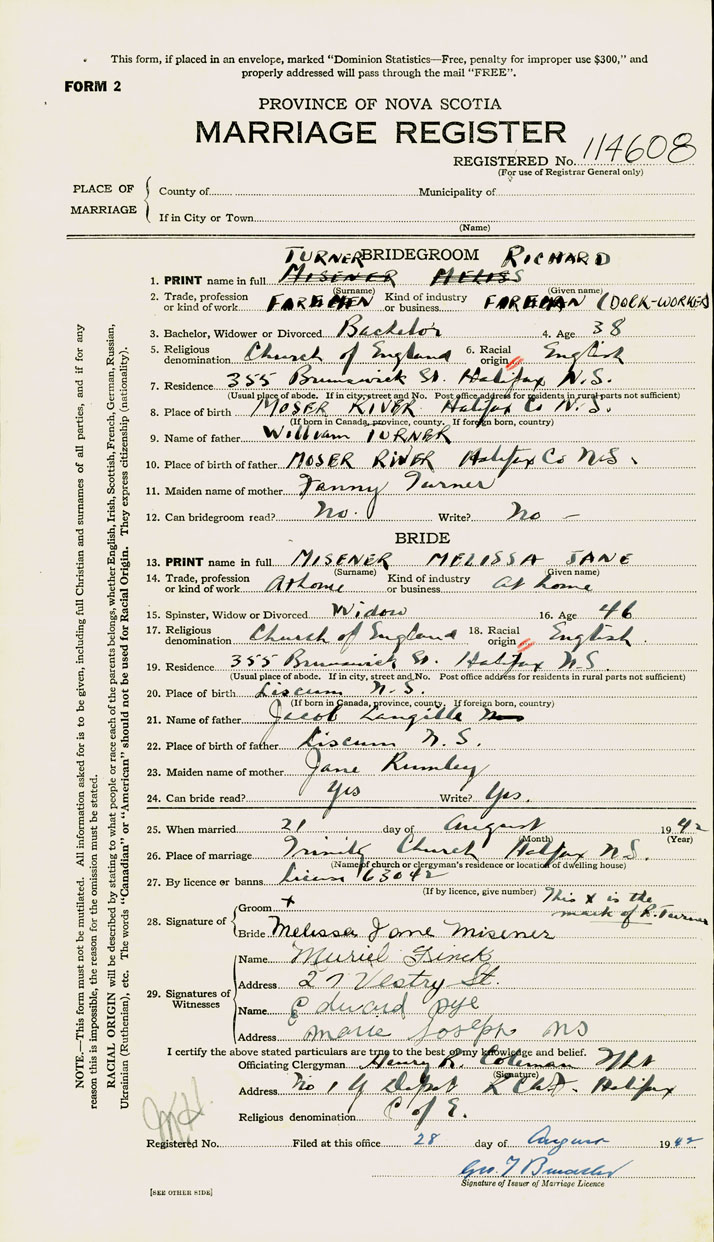 This form, if placed in an envelope, marked "Dominion Statistics—Free, penalty for improper use $300," and
properly addressed will pass through the mail "FREE".
FORM 2
PROVINCE OF NOVA SCOTIA
MARRIAGE REGISTER
REGISTERED No. 114608
(For use of Registrar General only)
PLACE OF MARRIAGE
County of Municipality of
If in City or Town
(Name)
TURNER BRIDEGROOM RICHARD
1. PRINT name in full MISENER MELISS
(Surname) (Given name)
2. Trade, profession or kind of work FOREMEN Kind of industry or business FOREMAN (DOCK-WORKER)
3. Bachelor, Widower or Divorced Bachelor 4. Age 38
5. Religious denomination Church of England 6. Racial origin English
7. Residence 355 Brunswick St. Halifax N.S.
(Usual place of abode. If in city, street and No. Post office address for residents in rural parts not sufficient)
8. Place of birth MOSER RIVER Halifax Co N.S.
(If born in Canada, province, county. If foreign born, country)
9. Name of father William TURNER
10. Place of birth of father MOSER RIVER Halifax Co N.S.
11. Maiden name of mother Fanny Turner
12. Can bridegroom read? No. Write? No –
BRIDE
13. PRINT name in full MISENER MELISSA JANE
(Surname) (Given name)
14. Trade, profession or kind of work At home Kind of industry or business At home
15. Spinster, Widow or Divorced Widow 16. Age 46
17. Religious denomination Church of England 18. Racial origin English
19. Residence 355 Brunswick St. Halifax N.S.
(Usual place of abode. If in city, street and No. Post office address for residents in rural parts not sufficient)
20. Place of birth Liscum N.S.
(If born in Canada, province, county. If foreign born, country)
21. Name of father Jacob Langille
22. Place of birth of father Liscum N.S.
23. Maiden name of mother Jane Rumley
24. Can bride read? Yes Write? Yes.
25. When married 21 day of August 1942
(Month) (Year)
26. Place of marriage Trinity Church Halifax N.S.
(Name of church or clergyman's residence or location of dwelling house)
27. By licence or banns License 63042
(If by licence, give number)
This x is the
mark of R. Turner
28. Signature of
Groom x
Bride Melissa Jane Misener
29. Signatures of Witnesses
Name Muriel Finck
Address 27 Vestry St.
Name Edward Pye
Address Marie Joseph NS
I certify the above stated particulars are true to the best of my knowledge and belief.
Officiating Clergyman Henry R. Coleman
(Signature)
Address No 1 Depot Halifax
Religious denomination C of E.
Registered No. Filed at this office 28 day of August 1942
Geo. T
Signature of Issuer of Marriage Licence
[SEE OTHER SIDE]
NOTE.—This form must not be mutilated. All information asked for is to be given, including full Christian and surnames of all parties, and if for any
reason this is impossible, the reason for the omission must be stated.
RACIAL ORIGIN will be described by stating to what people or race each of the parents belongs, whether English, Irish, Scottish, French, German, Russian,
Ukrainian (Ruthenian), etc. The words "Canadian" or "American" should not be used for Racial Origin. They express citizenship (nationality).